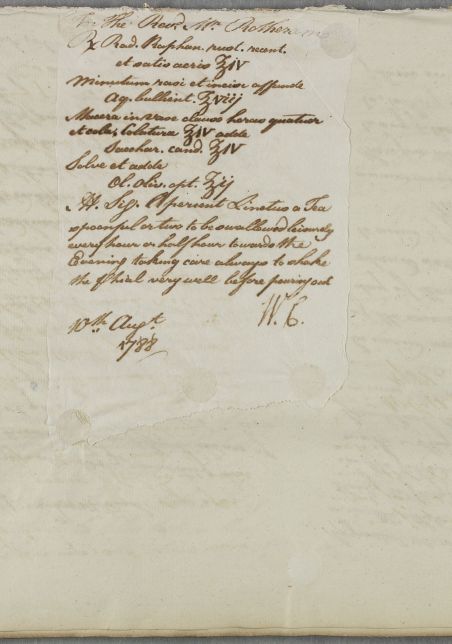 The Revd. Mr. Rotheram
℞ Rad. Raphan. rust. recent.
et satis acris ℥IV
Minutim rasi et incisi affunde
Aq. bullient. ℥viij
Macera in vase clauso horas quatuor
et cola; Colaturæ ℥IV adde
Sacchar. cand. ℥IV
Solve et adde
Ol. Oliv. opt. ℥ij
Sig. Aperient Linctus a Tea
spoonful or two to be swallowed leisurely
every hour or half hour towards the
Evening taking care always to shake
the Phial very well before pouring out
W. C.
10th. Augt.
1788